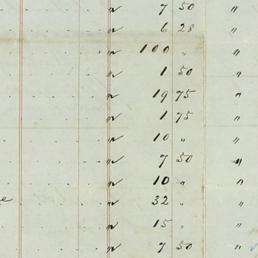 " 7 50 "
" 6 28 "
" 100 " "
" 1 50 "
" 19 75 "
" 1 75 "
" 10 " "
" 7 50 "
" 10 " "
" 32 " "
" 15 " "
" 7 50 "